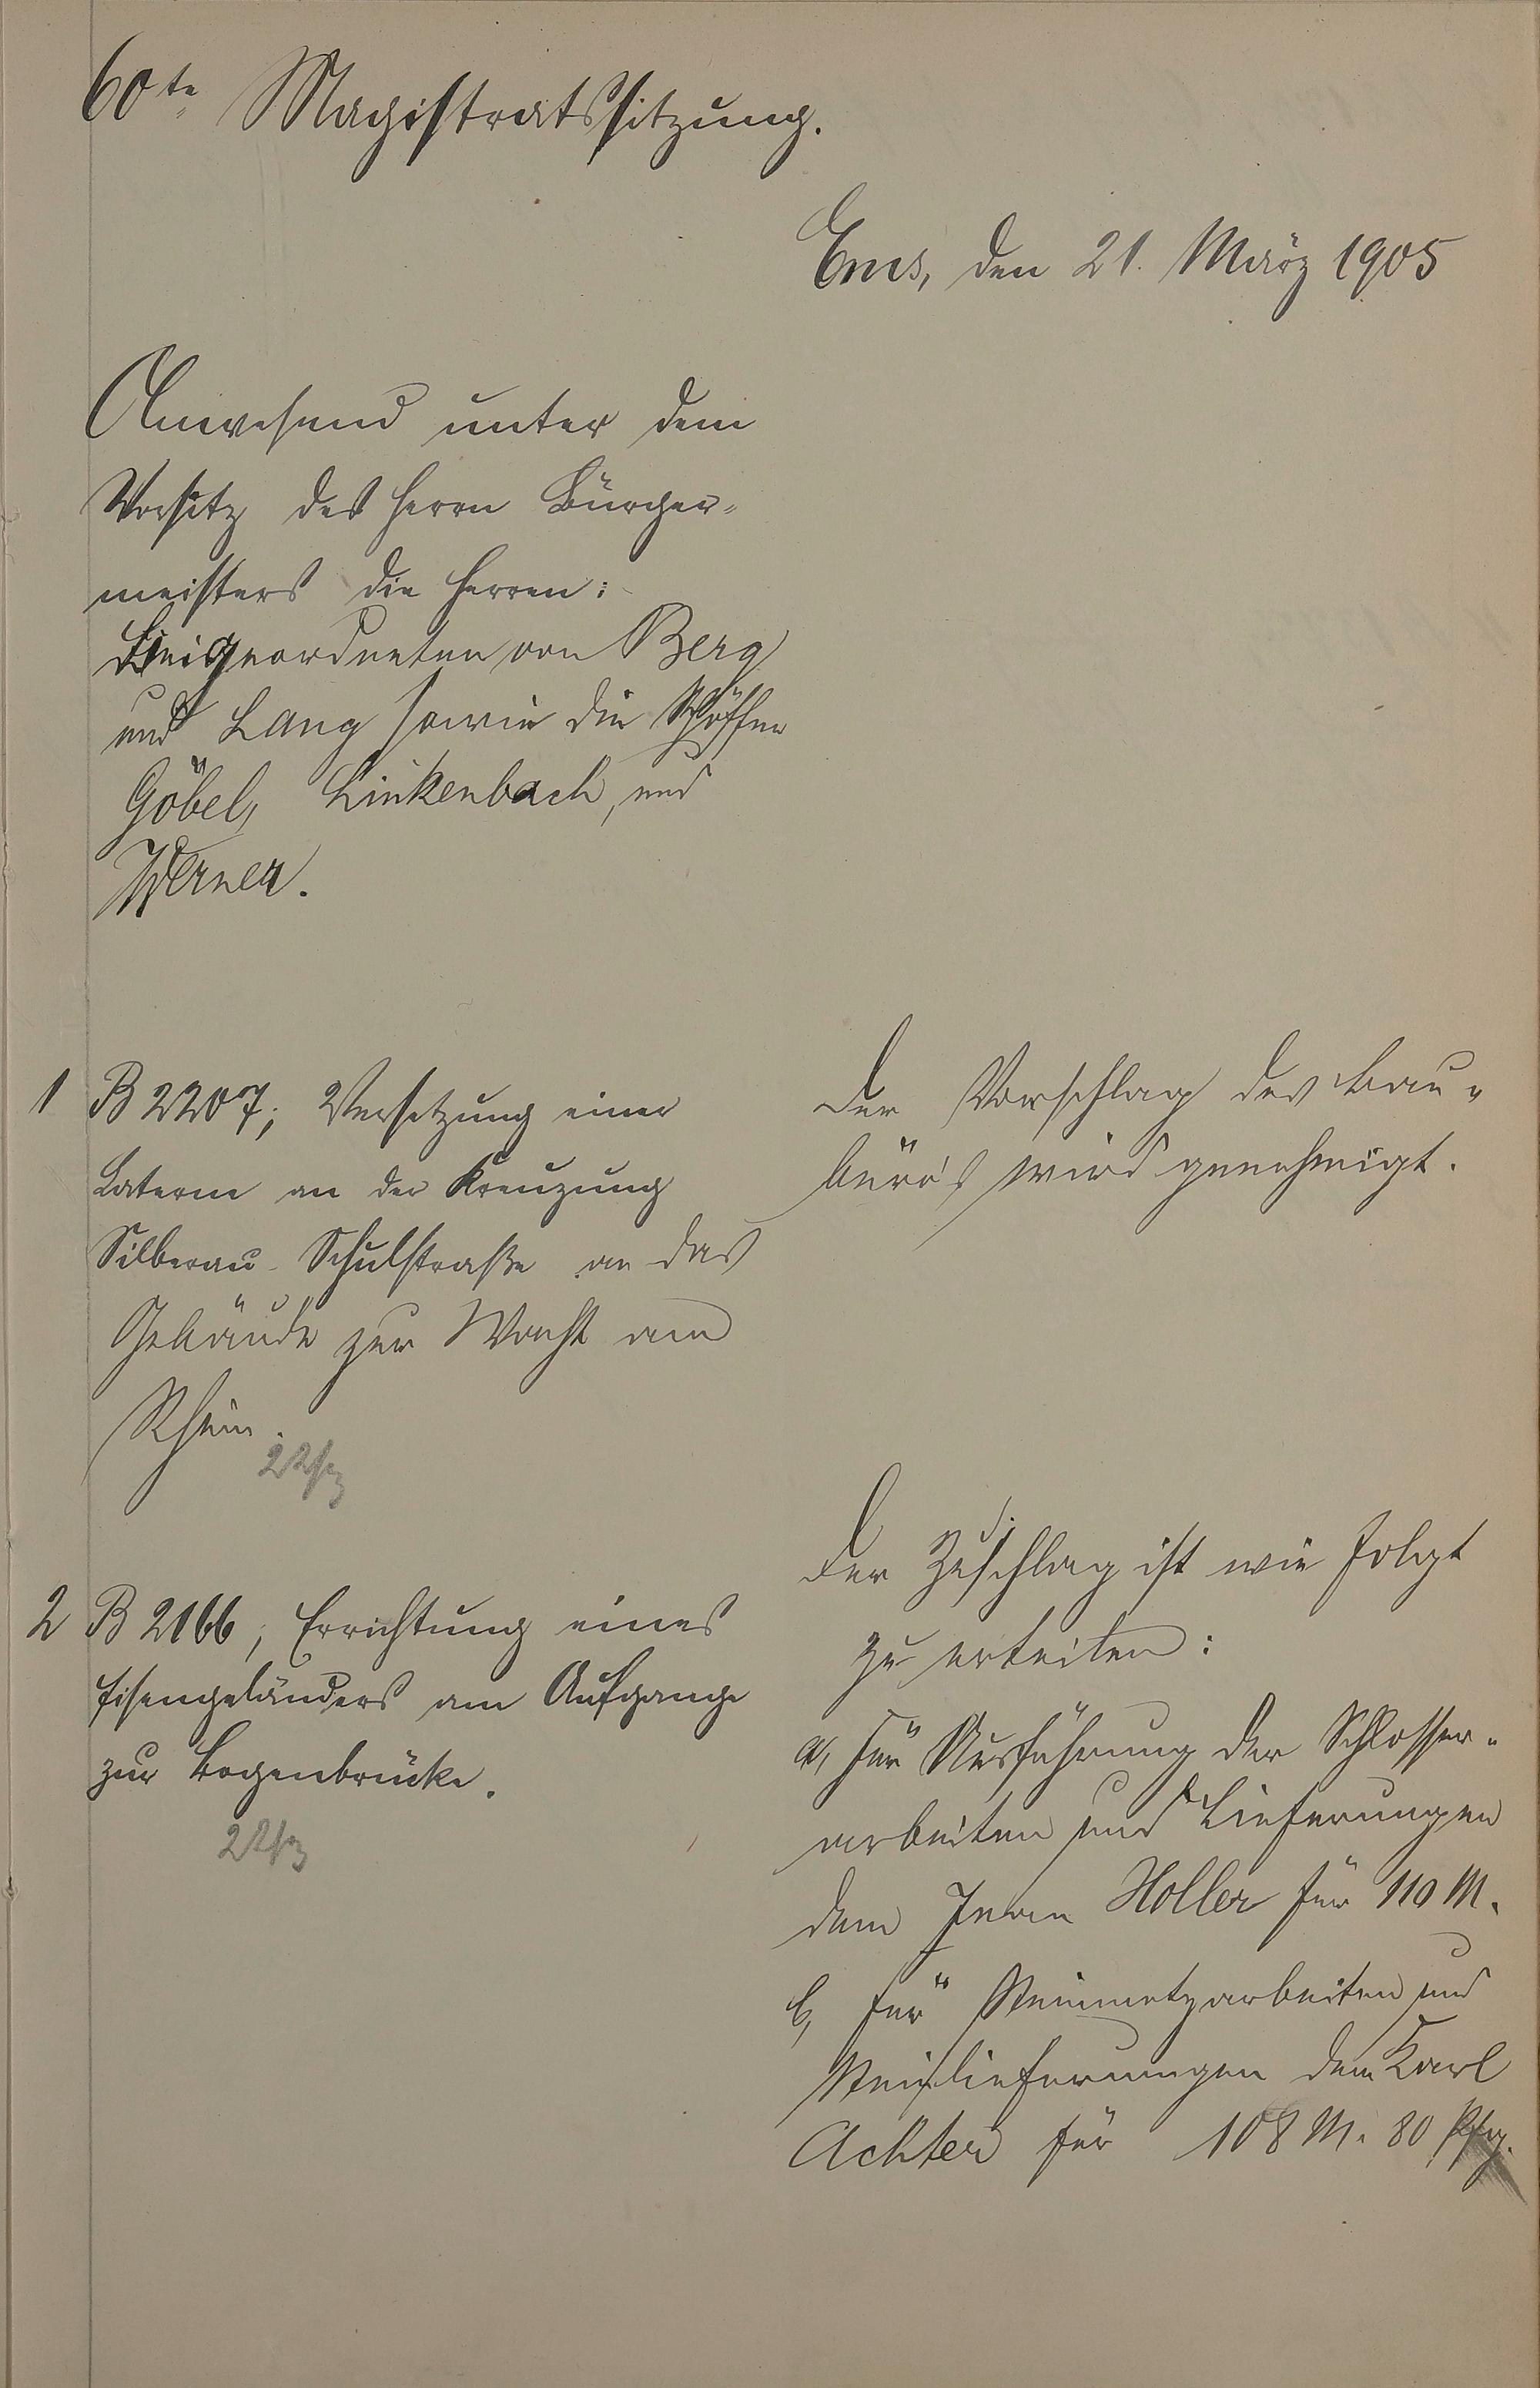 60te Magistratssitzung.
Ems, den 21. März 1905
Anwesend unter dem
Vorsitz des Herrn Bürger=
meisters die Herren:
Beigeordneten von Berg
und Lang sowie die Schöffen
Göbel, Linkenbach, und
Werner.
1 B 2207; Versetzung einer
Laterne an der Kreuzung
Silberau-Schulstraße an das
Gebäude zur Wacht am
Rhein.
Der Vorschlag des Bau=
büro's wird genehmigt.
2 B 2166, Errichtung eines
Eisengeländers am Aufgange
zur Bogenbrücke.
Der Zuschlag ist wie folgt
zu erteilen:
a, für Ausführung der Schlosser=
arbeiten und Lieferungen
dem Jean Holler für 110 M.
b, für Steinmetzarbeiten und
Steinlieferungen dem Karl
Achter für 108 M. 80 Pfg.